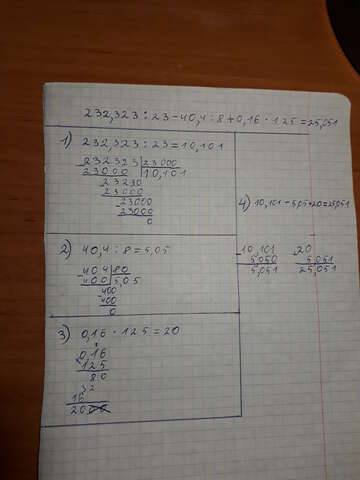 232,323 : 23 - 40,4 : 8 + 0,16 · 125 = 25,051
1) 232,323 : 23 = 10,101
232323 | 23000
23000 | 10,101
23230
23000
23000
23000
0
2) 40,4 : 8 = 5,05
404 | 80
400 | 5,05
400
400
0
3) 0,16 · 125 = 20
0,16
125
80
32
16
20
4) 10,101 - 5,05 + 20 = 25,051
10,101
5,050
5,051
20
5,051
25,051